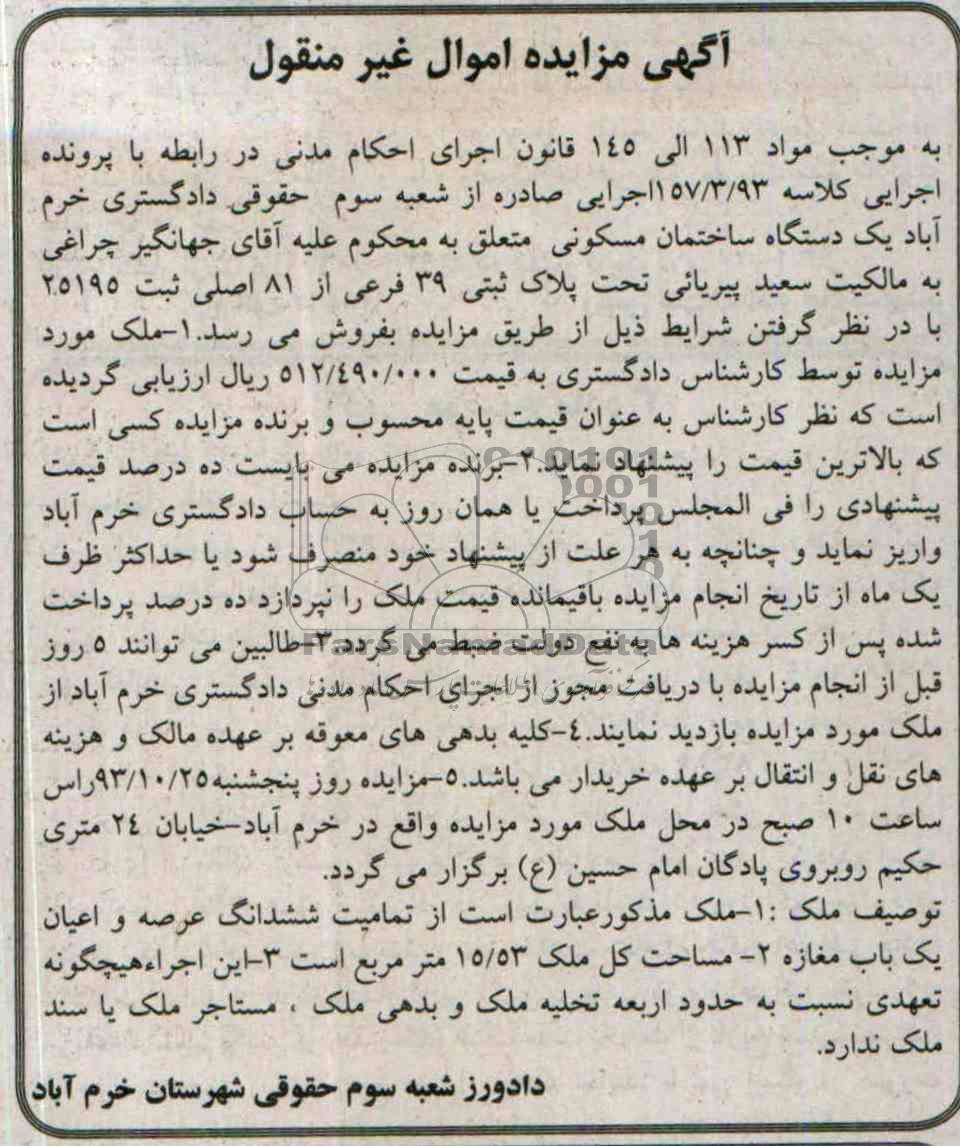 آگهی مزایده اموال غیر منقول
به موجب مواد ١١٣ الی ١٤٥ قانون اجرای احکام مدنی در رابطه با پرونده
اجرایی کلاسه ١٥٧/٣/٩٣اجرایی صادره از شعبه سوم حقوقی دادگستری خرم
آباد یک دستگاه ساختمان مسکونی متعلق به محکوم علیه آقای جهانگیر چراغی
به مالکیت سعید پیریائی تحت پلاک ثبتی ٣٩ فرعی از ٨١ اصلی ثبت ٢٥١٩٥
با در نظر گرفتن شرایط ذیل از طریق مزایده بفروش می رسد.١-ملک مورد
مزایده توسط کارشناس دادگستری به قیمت ٥١٢/٤٩٠/٠٠٠ ریال ارزیابی گردیده
است که نظر کارشناس به عنوان قیمت پایه محسوب و برنده مزایده کسی است
که بالاترین قیمت را پیشنهاد نماید.٢-برنده مزایده می بایست ده درصد قیمت
پیشنهادی را فی المجلس پرداخت یا همان روز به حساب دادگستری خرم آباد
واریز نماید و چنانچه به هر علت از پیشنهاد خود منصرف شود یا حداکثر ظرف
یک ماه از تاریخ انجام مزایده باقیمانده قیمت ملک را نپردازد ده درصد پرداخت
شده پس از کسر هزینه ها به نفع دولت ضبط می گردد.٣-طالبین می توانند ٥ روز
ParsNamadData
قبل از انجام مزایده با دریافت مجوز از اجرای احکام مدنی دادگستری خرم آباد از
ملک مورد مزایده بازدید نمایند.٤-کلیه بدهی های معوقه بر عهده مالک و هزینه
های نقل و انتقال بر عهده خریدار می باشد.٥-مزایده روز پنجشنبه٩٣/١٠/٢٥راس
ساعت ١٠ صبح در محل ملک مورد مزایده واقع در خرم آباد-خیابان ٢٤ متری
حکیم روبروی پادگان امام حسین (ع) برگزار می گردد.
توصیف ملک :١-ملک مذکورعبارت است از تمامیت ششدانگ عرصه و اعیان
یک باب مغازه ٢- مساحت کل ملک ١٥/٥٣ متر مربع است ٣-این اجراءهیچگونه
تعهدی نسبت به حدود اربعه تخلیه ملک و بدهی ملک ، مستاجر ملک یا سند
ملک ندارد.
دادورز شعبه سوم حقوقی شهرستان خرم آباد